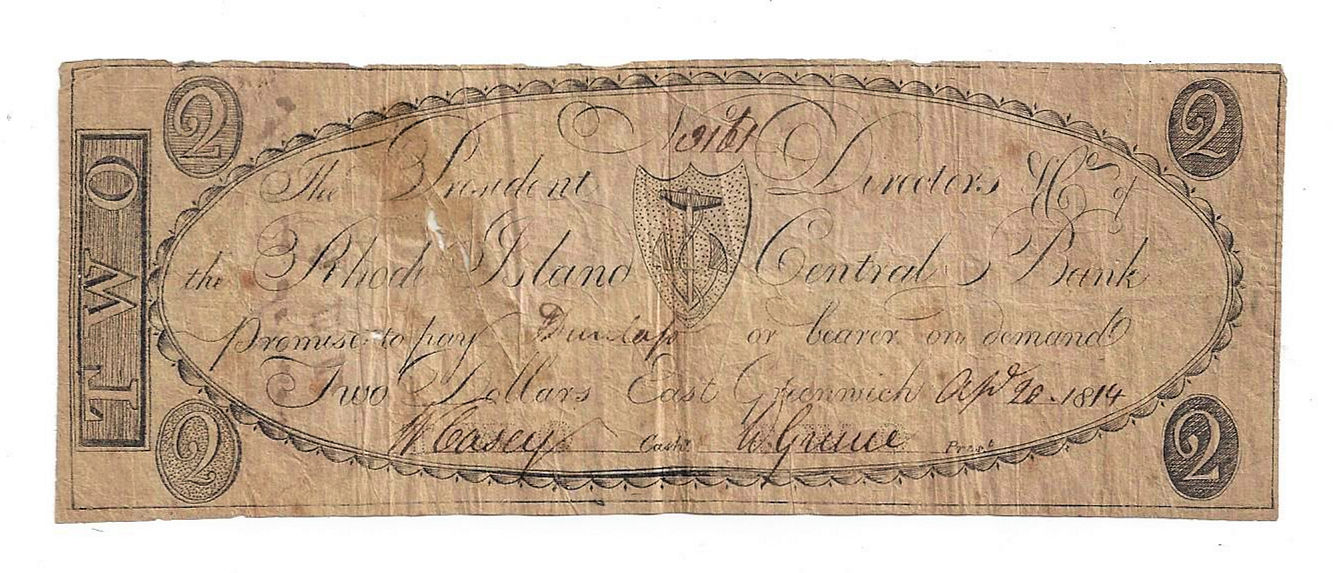 2 2
TWO
The President Directors & Co. of
the Rhode Island Central Bank
promise to pay Dunlap or bearer on demand
Two Dollars East Greenwich Apl 20 1814
W Casey Cashr. W Greene Presdt
2 2